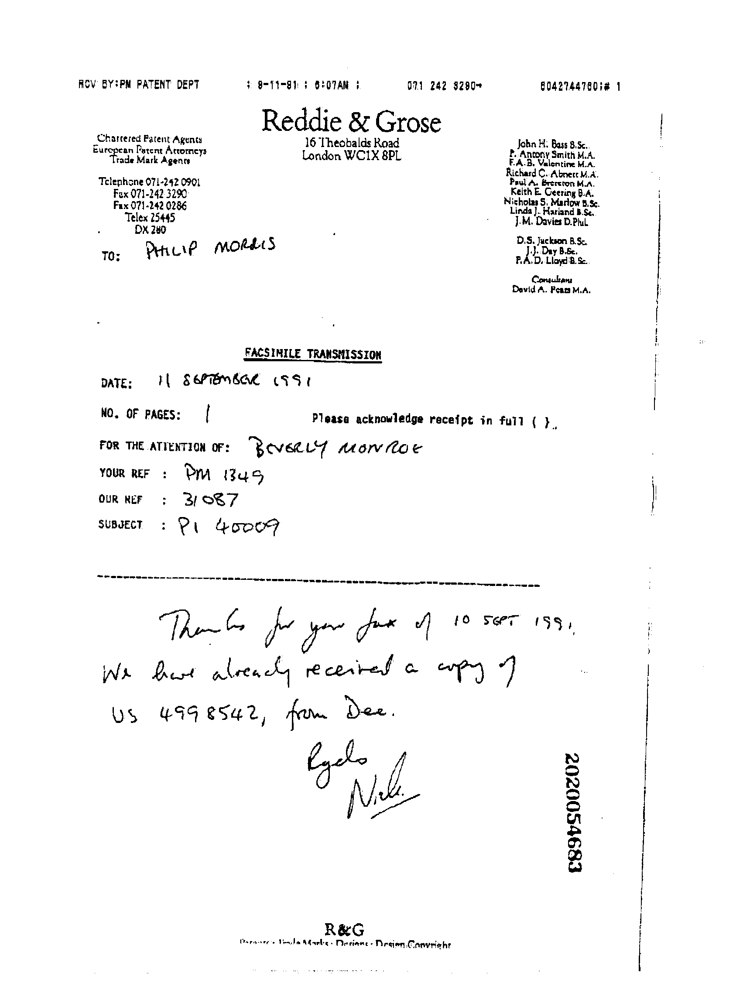 RCV BY:PM PATENT DEPT : 8-11-91 ; 6:07AM ; 071 242 3290→ 8042744760;# 1
Reddie & Grose
16 Theobalds Road
London WC1X 8PL
Chartered Patent Agents
European Patent Attorneys
Trade Mark Agents
Telephone 071-242 0901
Fax 071-242 3290
Fax 071-242 0286
Telex 25445
DX 280
John H. Bass B.Sc.
P. Antony Smith M.A.
F.A.B. Valentine M.A.
Richard C. Abnett M.A.
Paul A. Brereton M.A.
Keith E. Geering B.A.
Nicholas S. Marlow B.Sc.
Linda J. Harland B.Sc.
J.M. Davies D.Phil.
D.S. Jackson B.Sc.
J.J. Day B.Sc.
P.A.D. Lloyd B.Sc.
Consultant
David A. Pears M.A.
TO: PHILIP MORRIS
FACSIMILE TRANSMISSION
DATE: 11 SEPTEMBER 1991
NO. OF PAGES: 1 Please acknowledge receipt in full ( ).
FOR THE ATTENTION OF: BEVERLY MONROE
YOUR REF : PM 1349
OUR REF : 31087
SUBJECT : PI 40009
Thanks for your fax of 10 SEPT 1991.
We have already received a copy of
US 4998542, from Dee.
Rgds
Nick.
2020054683
R&G
Patents · Trade Marks · Designs · Design Copyright